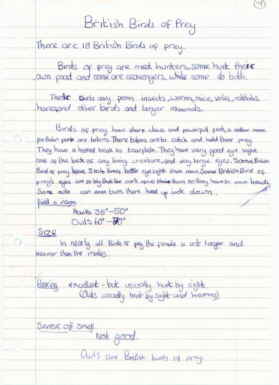 British Birds of Prey
There are 18 British Birds of prey.
Birds of prey are meat hunters, some hunt there
own food and some are scavengers, while some do both.
Birds prey from insects, worms, mice, voles, rabbits
hares, and other birds and larger mammals.
Birds of prey have sharp claws and powerful feet, a
are talons. There talons are to catch and hold there prey.
They have a hooked beak to tear flesh. They have very good eye sight
one of the best of any living creature, and very large eyes. Some British
Birds of prey have 3 to 4 times better eye sight than man. Some British Birds of
prey's eyes are so big that
Some can turn there head up side down.
Hawks 35°-50°
Owls 60°-70°
Size
In nearly all Birds of prey the female is a lot larger and
heavier than the males.
Hearing excellent - but usually hunt by sight.
(Owls usually hunt by sight and hearing)
Sense of Smell
Not good.
Owls are British birds of prey